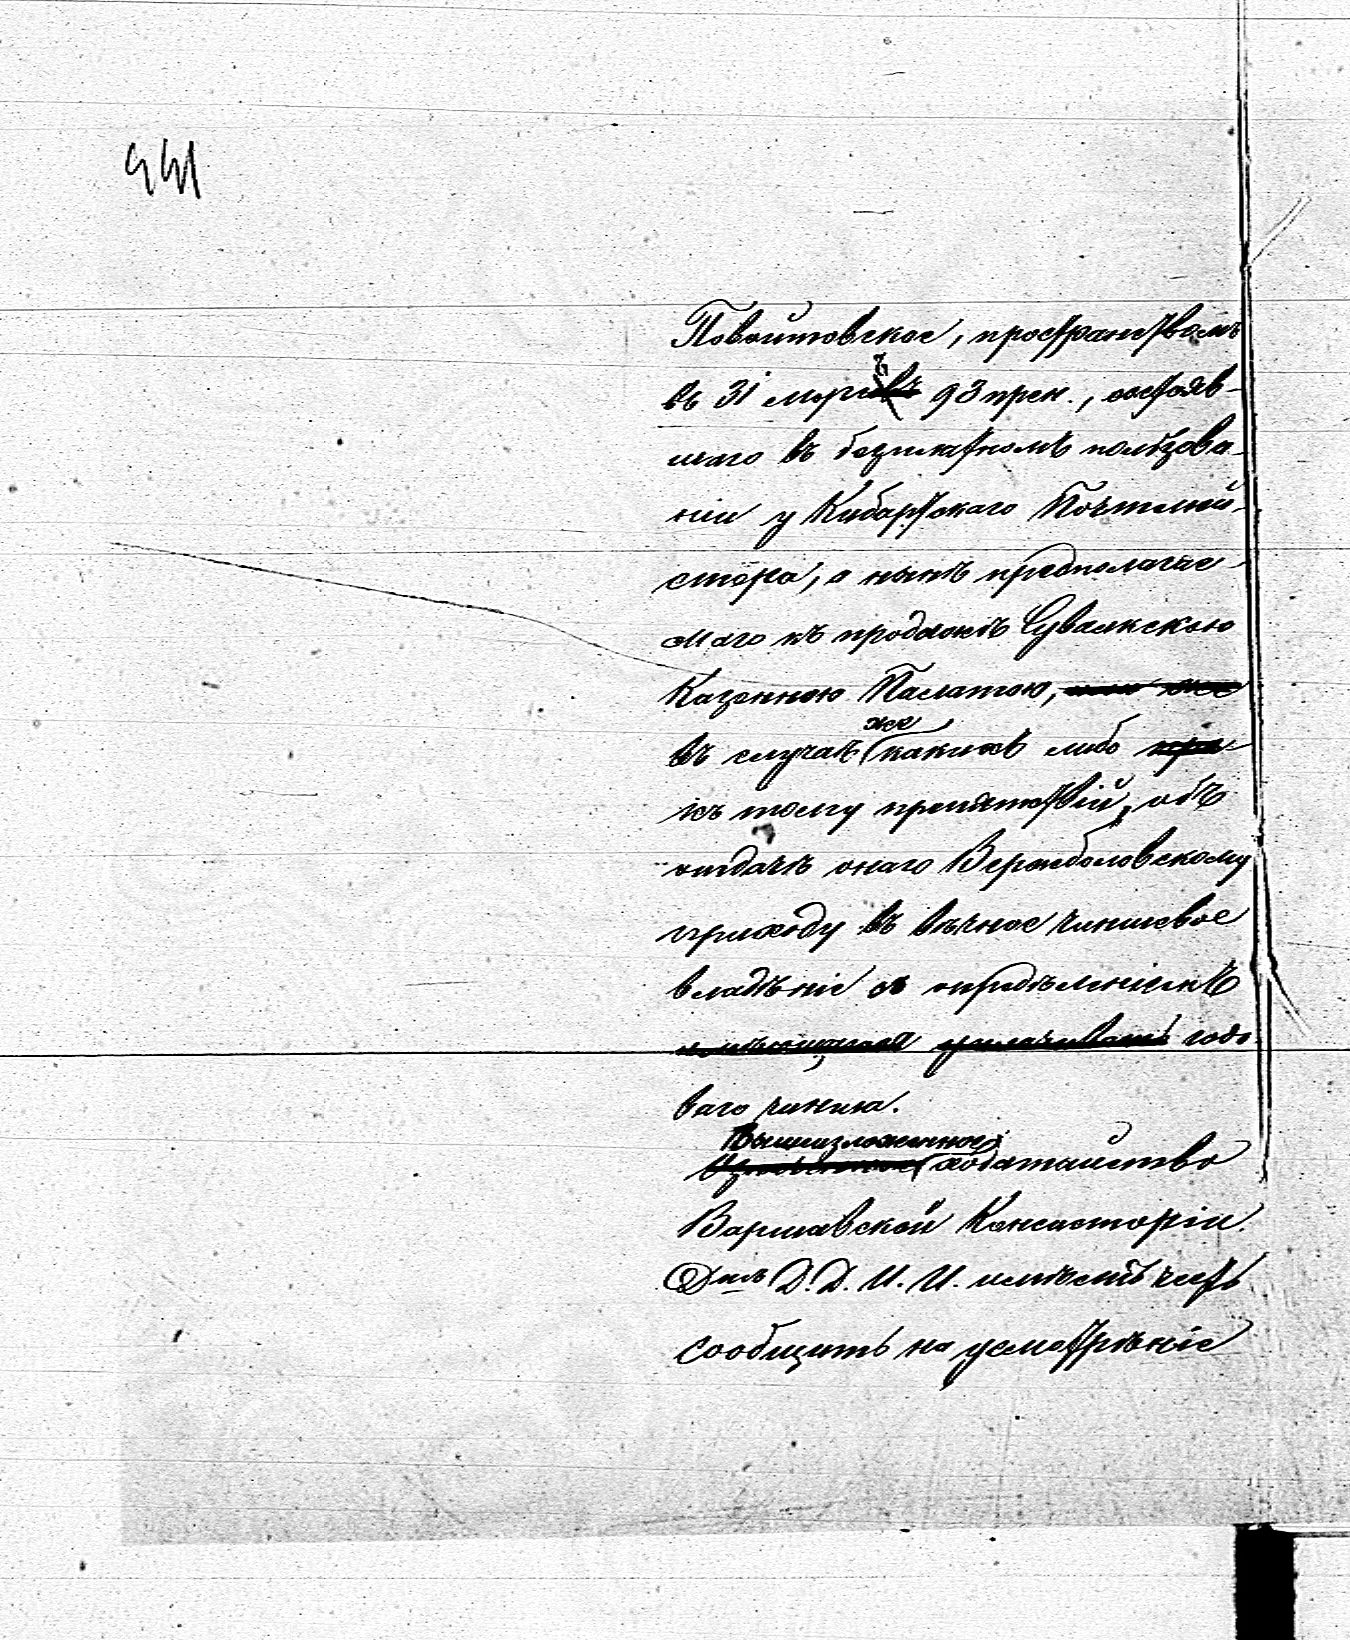 441
Повойтовское, пространствомъ
въ 31 моргъ 93 прен., состояв-
шаго въ безплатномъ пользова-
ніи у Кибартскаго Почтмей-
стера, а нынѣ предполагае-
маго къ продажѣ Сувалкскою
Казенною Палатою, или же
въ случаѣ же какихъ либо пре
къ тому препятствій, объ
отдачѣ онаго Вержболовскому
приходу въ вѣчное чиншевое
владѣніе съ опредѣленіемъ
имѣющагося уплачивать годо-
ваго чинша.
Вышеизложенное
ходатайство
Варшавской Консисторіи
Д. Д. И. И. имѣетъ честь
сообщить на усмотрѣніе